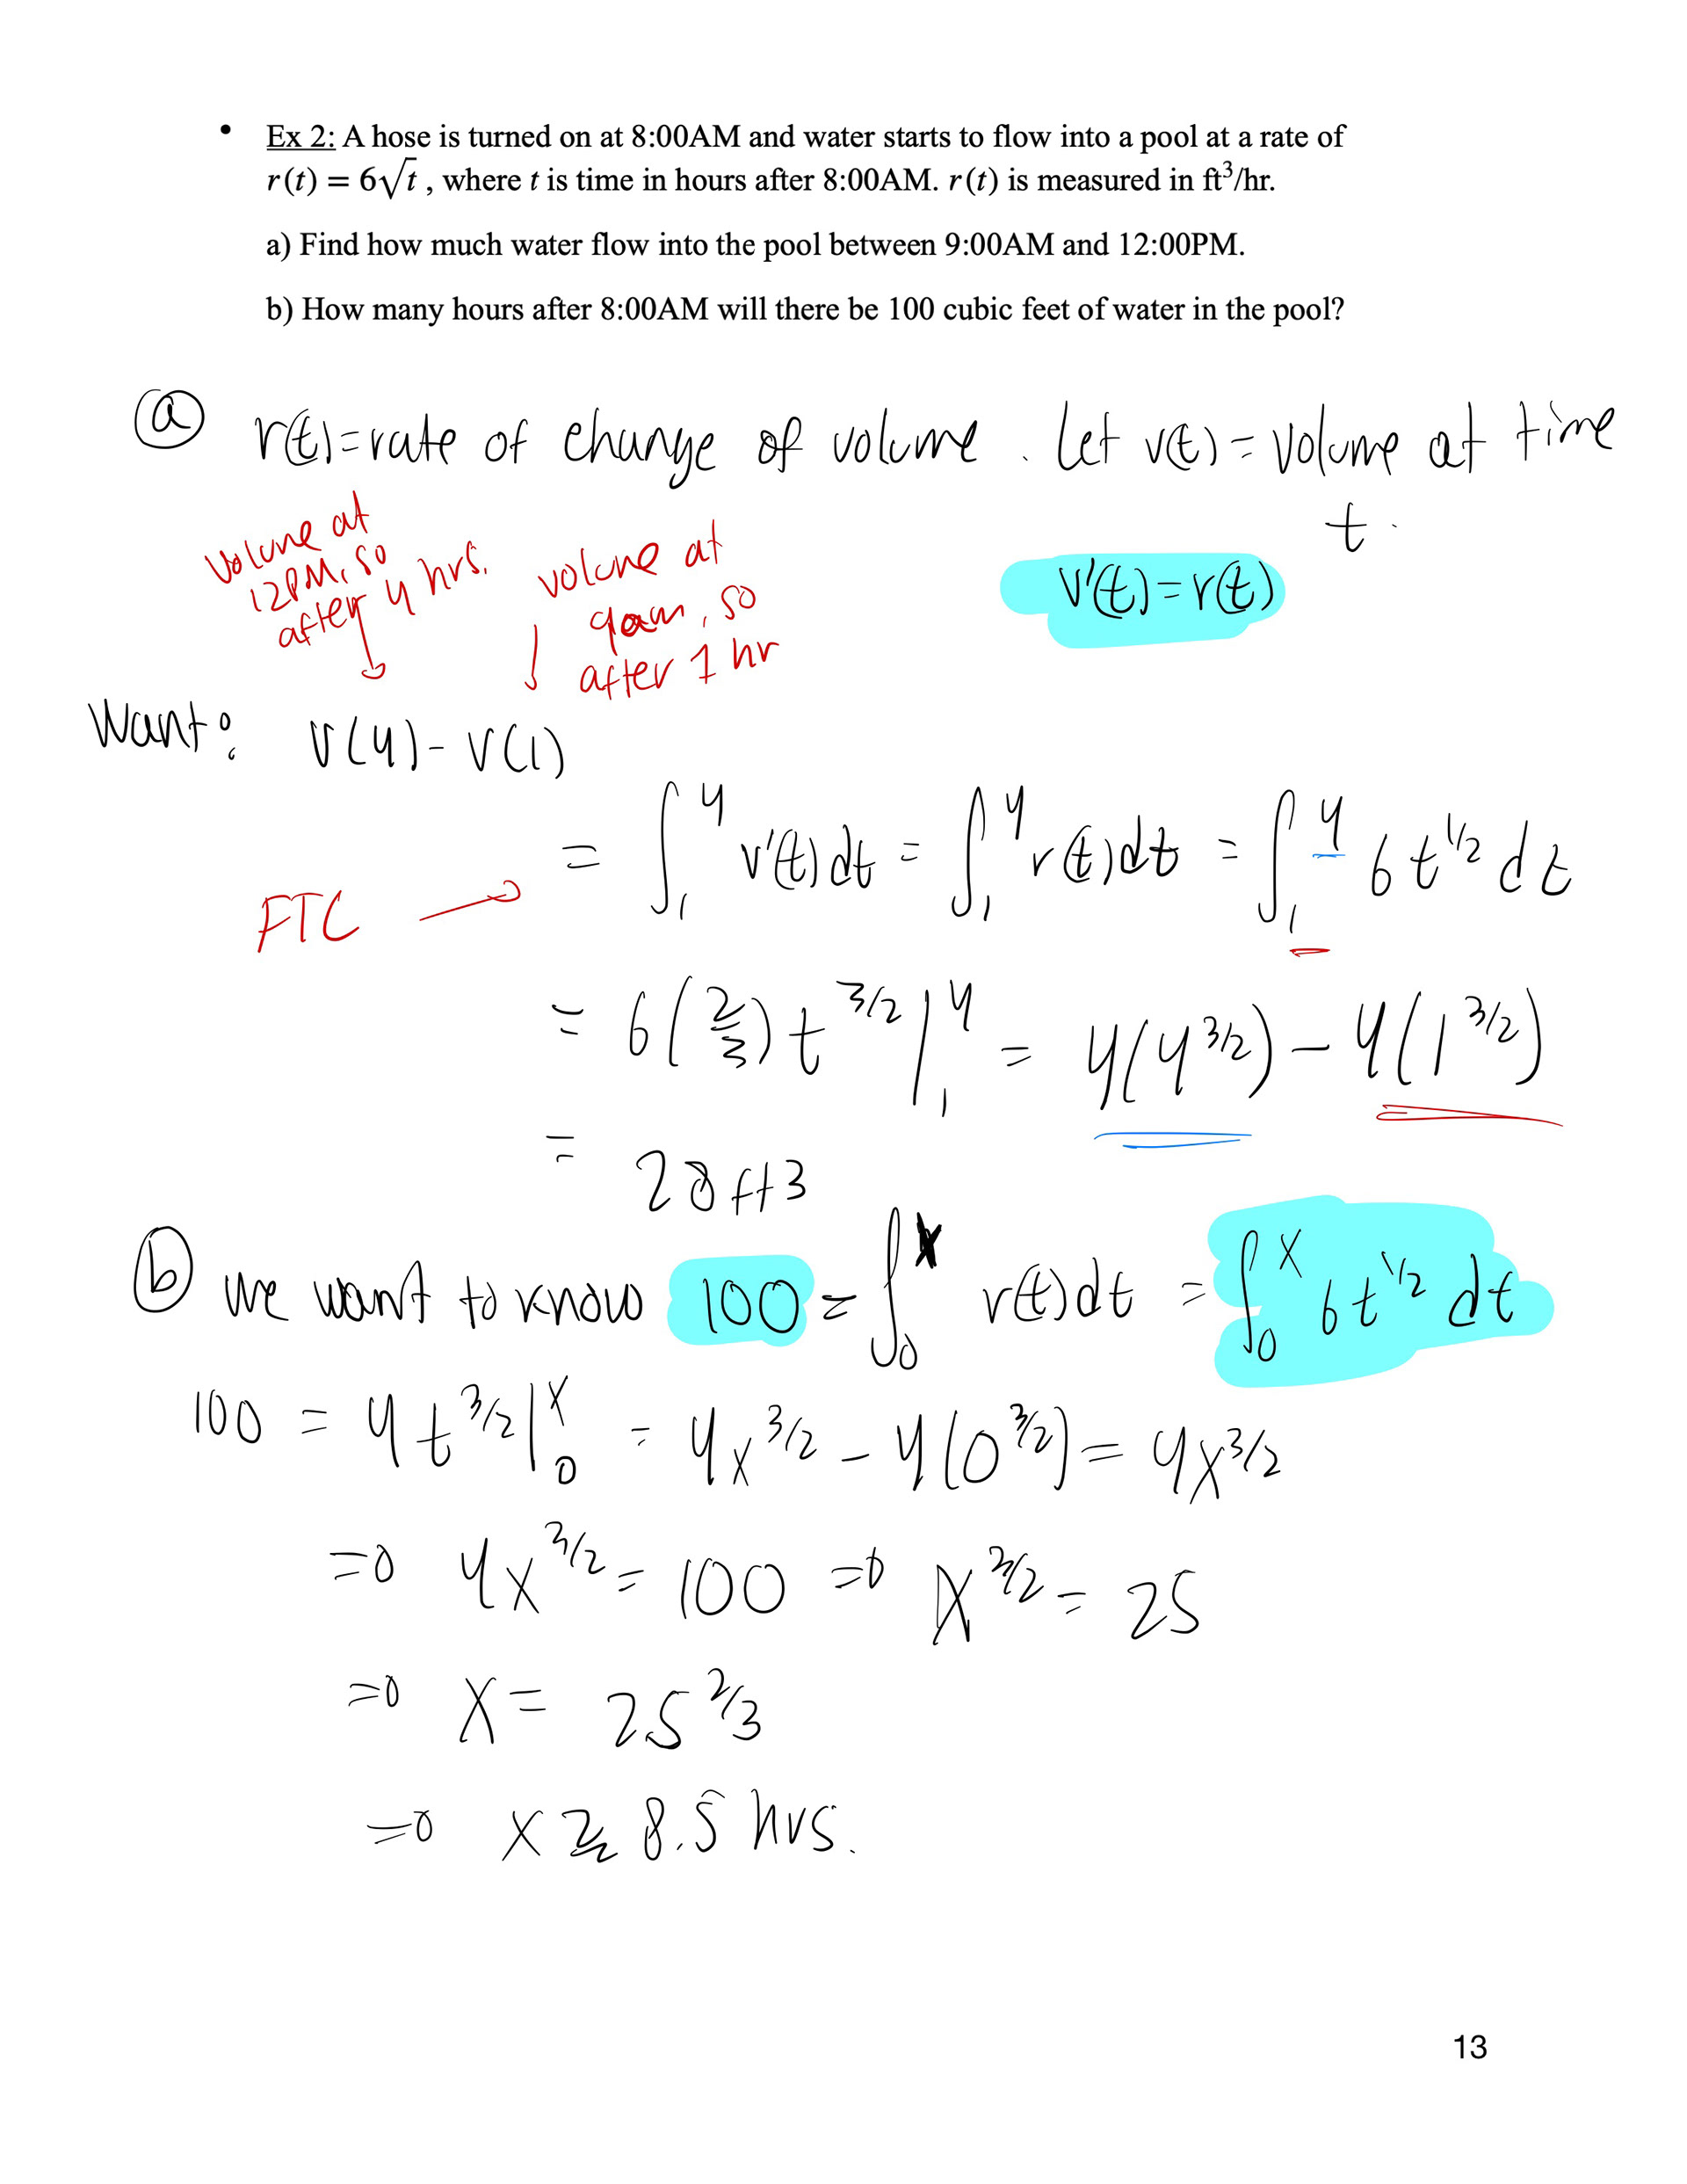 • Ex 2: A hose is turned on at 8:00AM and water starts to flow into a pool at a rate of
r(t) = 6√t , where t is time in hours after 8:00AM. r(t) is measured in ft³/hr.
a) Find how much water flow into the pool between 9:00AM and 12:00PM.
b) How many hours after 8:00AM will there be 100 cubic feet of water in the pool?
ⓐ r(t)=rate of change of volume . Let v(t) = volume at time
t.
volume at
12PM, so
after 4 hrs.
volume at
9am, so
after 1 hr
v'(t)=r(t)
Want: v(4)-v(1)
= ∫₁⁴ v'(t)dt = ∫₁⁴ r(t)dt = ∫₁⁴ 6t^1/2 dt
FTC →
= 6(2/3)t^3/2 |₁⁴ = 4(4^3/2) - 4(1^3/2)
= 28ft3
ⓑ we want to know 100 = ∫₀ˣ r(t)dt = ∫₀ˣ 6t^1/2 dt
100 = 4t^3/2 |₀ˣ = 4x^3/2 - 4(0^3/2) = 4x^3/2
⇒ 4x^3/2 = 100 ⇒ x^3/2 = 25
⇒ x = 25^2/3
⇒ x ≈ 8.5 hrs.
13